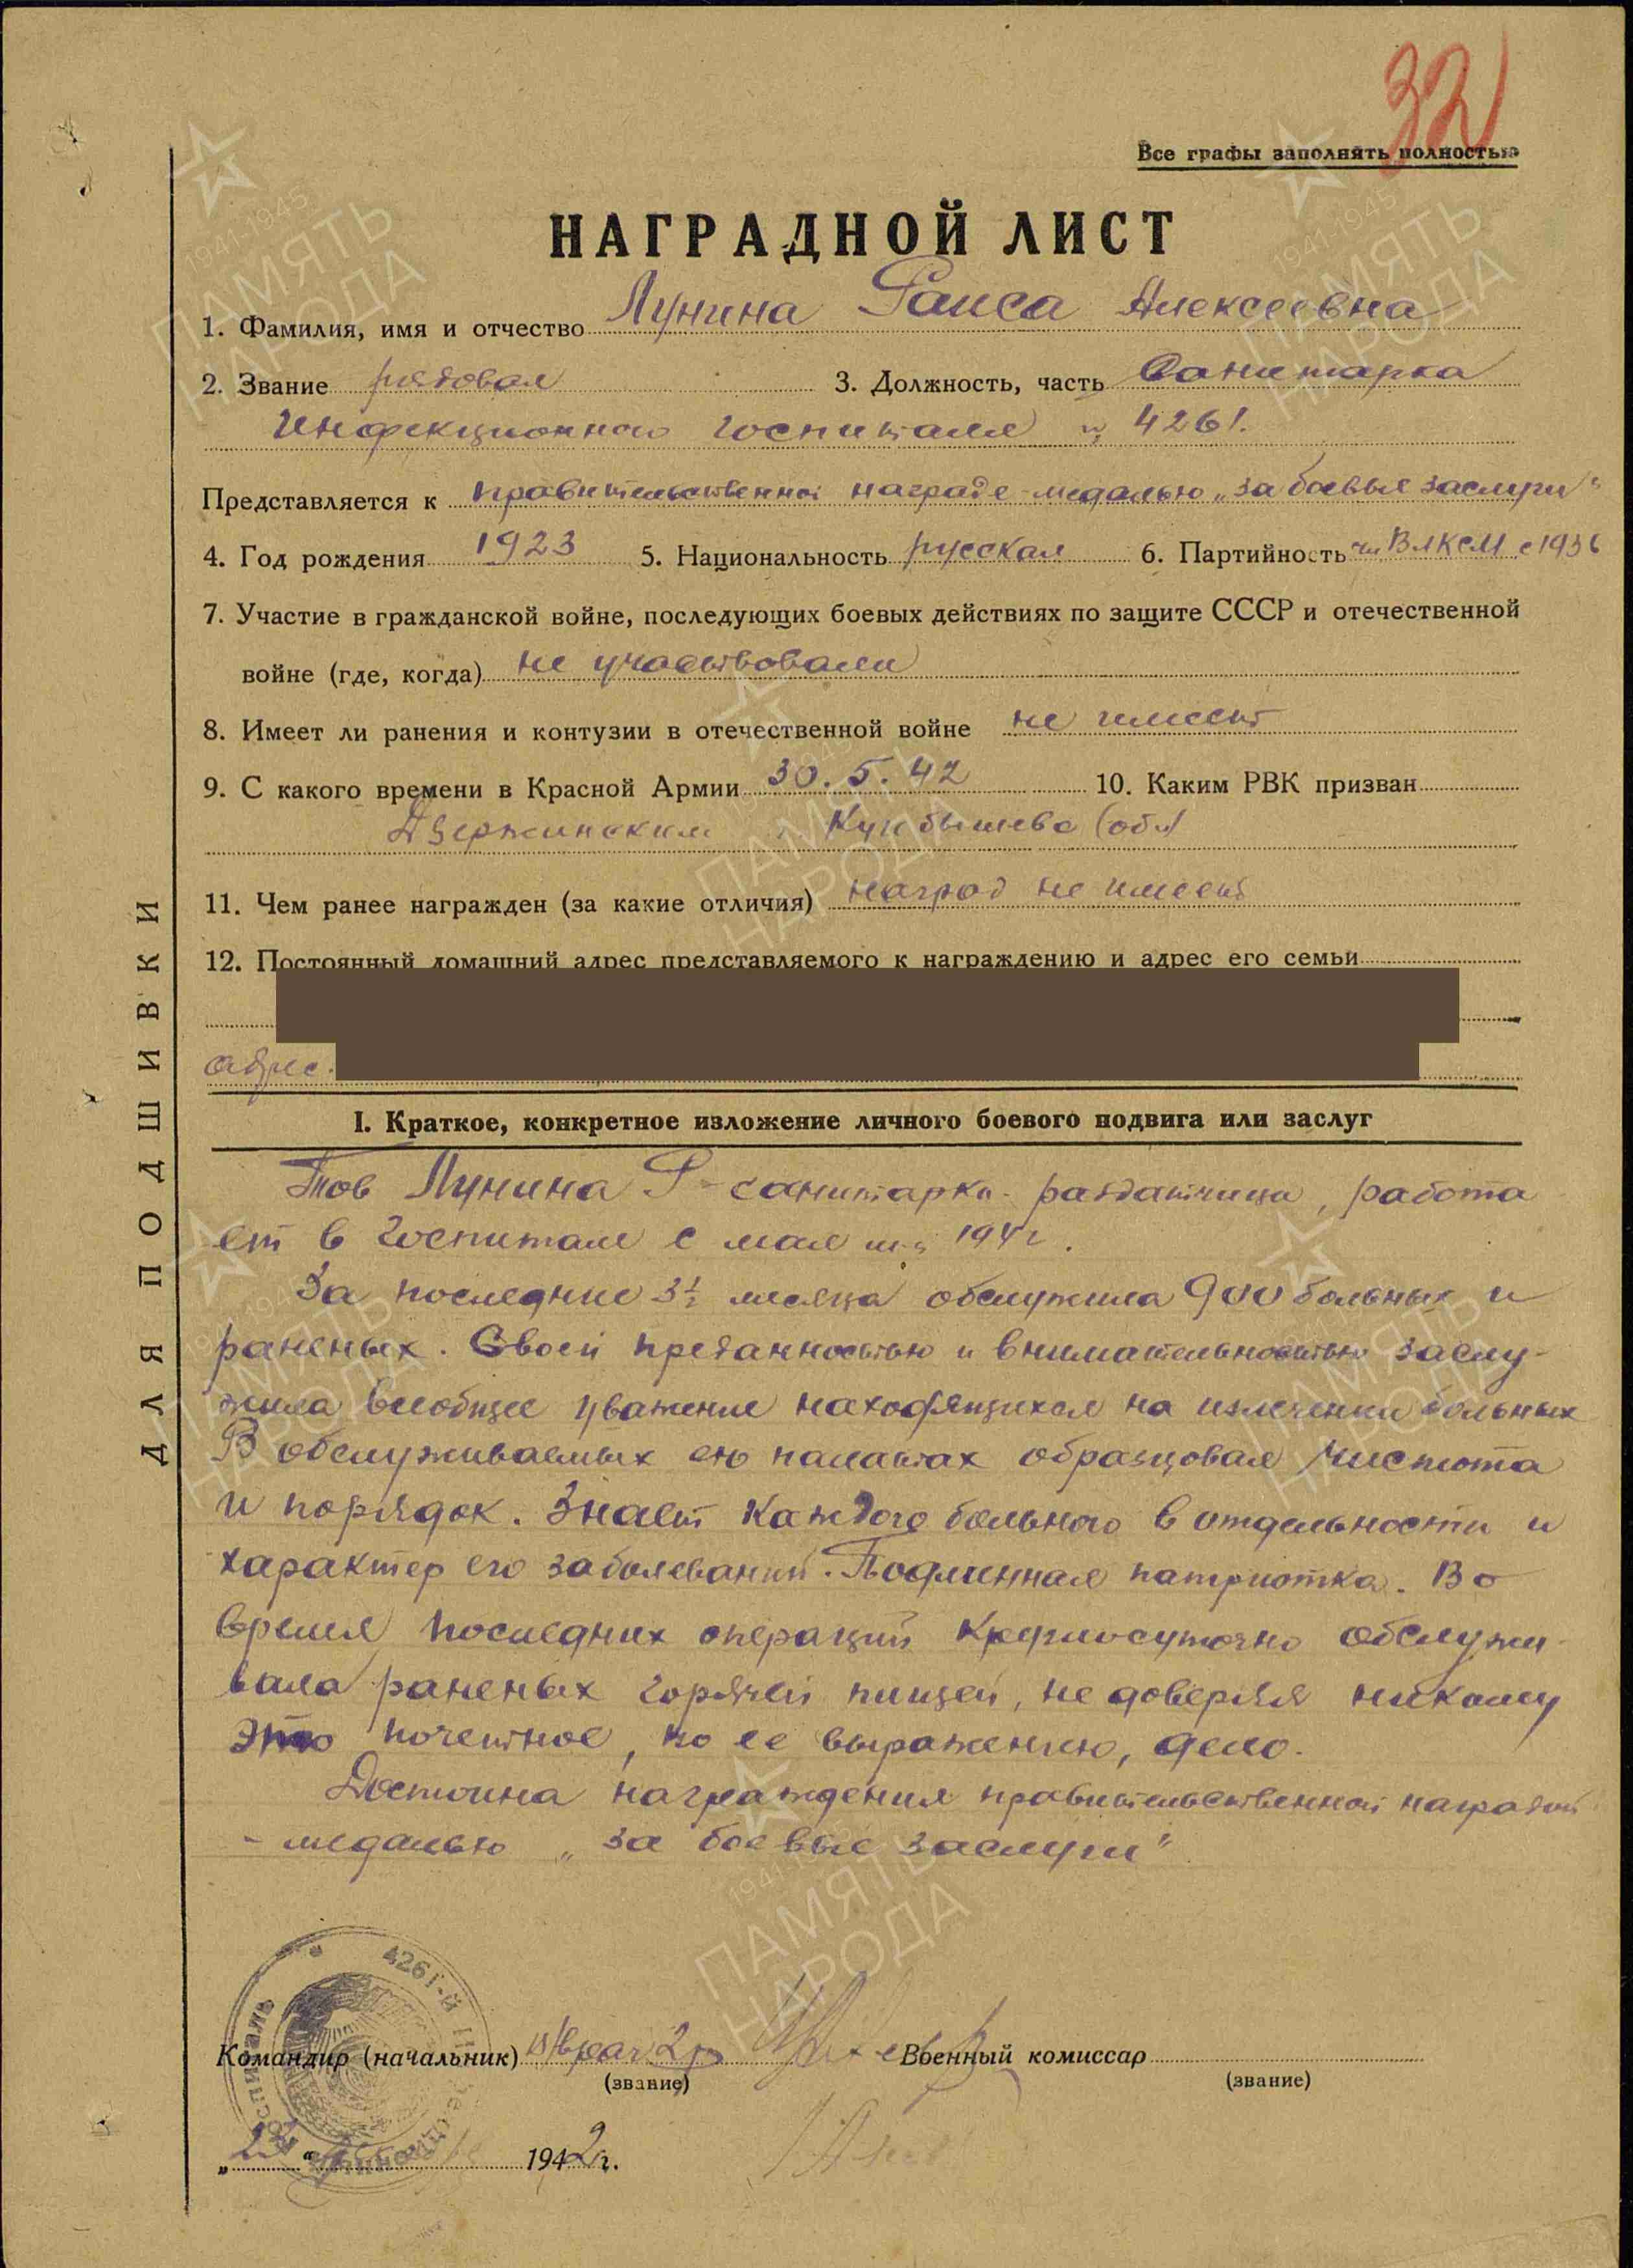 32
Все графы заполнять полностью
НАГРАДНОЙ ЛИСТ
1. Фамилия, имя и отчество Лунина Раиса Алексеевна
2. Звание рядовая 3. Должность, часть Санитарка
Инфекционного госпиталя № 4261.
Представляется к правительственной награде - медалью „За боевые заслуги“
4. Год рождения 1923 5. Национальность русская 6. Партийность чл. ВЛКСМ с 1936
7. Участие в гражданской войне, последующих боевых действиях по защите СССР и отечественной
войне (где, когда) не участвовала
8. Имеет ли ранения и контузии в отечественной войне не имеет
9. С какого времени в Красной Армии 30.5.42 10. Каким РВК призван
Дзержинским г. Куйбышева (обл)
11. Чем ранее награжден (за какие отличия) наград не имеет
12. Постоянный домашний адрес представляемого к награждению и адрес его семьи
адрес.
ДЛЯ ПОДШИВКИ
I. Краткое, конкретное изложение личного боевого подвига или заслуг
Тов Лунина Р - санитарка - раздатчица, работа
ет в госпитале с мая м-ца 1942.
За последние 3½ месяца обслужила 900 больных и
раненых. Своей преданностью и внимательностью заслу-
жила всеобщее уважение находящихся на излечении больных
В обслуживаемых ею палатах образцовая чистота
и порядок. Знает каждого больного в отдельности и
характер его заболеваний. Подлинная патриотка. Во
время последних операций круглосуточно обслужи-
вала раненых горячей пищей, не доверяя никому
это почетное, по ее выражению, дело.
Достойна награждения правительственной наградой
- медалью „за боевые заслуги“
Командир (начальник) в/врач 2 р Военный комиссар
(звание) (звание)
1942 г.
4261-й
госпиталь
1941-1945
ПАМЯТЬ
НАРОДА